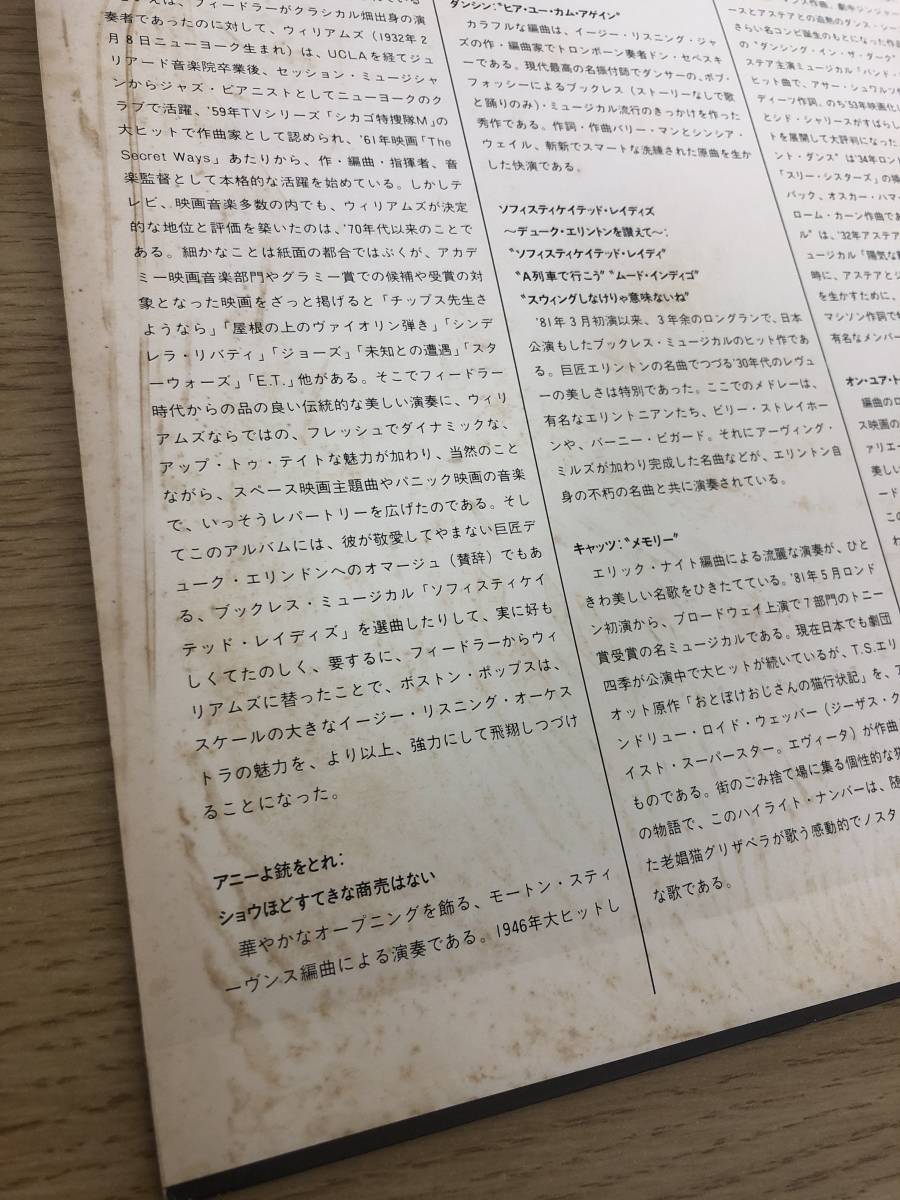 えば、フィードラーがクラシカル畑出身の演
奏者であったのに対して、ウィリアムズ（1932年2
月8日ニューヨーク生まれ）は、UCLAを経てジュ
リアード音楽院卒業後、セッション・ミュージシャ
ンからジャズ・ピアニストとしてニューヨークのク
ラブで活躍、'59年TVシリーズ「シカゴ特捜隊M」の
大ヒットで作曲家として認められ、'61年映画「The
Secret Ways」あたりから、作・編曲・指揮者、音
楽監督として本格的な活躍を始めている。しかしテ
レビ、映画音楽多数の内でも、ウィリアムズが決定
的な地位と評価を築いたのは、'70年代以来のことで
ある。細かなことは紙面の都合ではぶくが、アカデ
ミー映画音楽部門やグラミー賞での候補や受賞の対
象となった映画をざっと掲げると「チップス先生さ
ようなら」「屋根の上のヴァイオリン弾き」「シンデ
レラ・リバティ」「ジョーズ」「未知との遭遇」「スタ
ーウォーズ」「E.T.」他がある。そこでフィードラー
時代からの品の良い伝統的な美しい演奏に、ウィリ
アムズならではの、フレッシュでダイナミックな、
アップ・トゥ・テイトな魅力が加わり、当然のこと
ながら、スペース映画主題曲やパニック映画の音楽
で、いっそうレパートリーを広げたのである。そし
てこのアルバムには、彼が敬愛してやまない巨匠デ
ューク・エリンドンへのオマージュ（賛辞）でもあ
る、ブックレス・ミュージカル「ソフィスティケイ
テッド・レイディズ」を選曲したりして、実に好も
しくてたのしく、要するに、フィードラーからウィ
リアムズに替ったことで、ボストン・ポップスは、
スケールの大きなイージー・リスニング・オーケス
トラの魅力を、より以上、強力にして飛翔しつづけ
ることになった。
アニーよ銃をとれ：
ショウほどすてきな商売はない
華やかなオープニングを飾る、モートン・スティ
ーヴンス編曲による演奏である。1946年大ヒットし
ダンシン：“ヒア・ユー・カム・アゲイン”
カラフルな編曲は、イージー・リスニング・ジャ
ズの作・編曲家でトロンボーン奏者ドン・セベスキ
ーである。現代最高の名振付師でダンサーの、ボブ・
フォッシーによるブックレス（ストーリーなしで歌
と踊りのみ）・ミュージカル流行のきっかけを作った
秀作である。作詞・作曲バリー・マンとシンシア・
ウェイル、斬新でスマートな洗練された原曲を生か
した快演である。
ソフィスティケイテッド・レイディズ
〜デューク・エリントンを讃えて〜：
“ソフィスティケイテッド・レイディ”
“A列車で行こう”“ムード・インディゴ”
“スウィングしなけりゃ意味ないね”
'81年3月初演以来、3年余のロングランで、日本
公演もしたブックレス・ミュージカルのヒット作であ
る。巨匠エリントンの名曲でつづる'30年代のレヴュ
ーの美しさは特別であった。ここでのメドレーは、
有名なエリントニアンたち、ビリー・ストレイホー
ンや、バーニー・ビガード。それにアーヴィング・
ミルズが加わり完成した名曲などが、エリントン自
身の不朽の名曲と共に演奏されている。
キャッツ：“メモリー”
エリック・ナイト編曲による流麗な演奏が、ひと
きわ美しい名歌をひきたてている。'81年5月ロンド
ン初演から、ブロードウェイ上演で7部門のトニー
賞受賞の名ミュージカルである。現在日本でも劇団
四季が公演中で大ヒットが続いているが、T.S.エリ
オット原作「おとぼけおじさんの猫行状記」を、ア
ンドリュー・ロイド・ウェッバー（ジーザス・ク
イスト・スーパースター。エヴィータ）が作曲
ものである。街のごみ捨て場に集る個性的な猫
の物語で、このハイライト・ナンバーは、随
た老娼猫グリザベラが歌う感動的でノスタ
な歌である。
ースとアステアとの追熱のダンス・シー
さらい名コンビ誕生のもとになった作品
の“ダンシング・イン・ザ・ダーク”
ステア主演ミュージカル「バンド・
ヒット曲で、アーサー・シュワルツ
ディーツ作詞。のち'53年映画化
とシド・シャリースがすばらし
トを展開して大評判になった
ント・ダンス”は'34年ロンド
「スリー・シスターズ」の挿
バック、オスカー・ハマー
ローム・カーン作曲であ
ル”は、'32年アステア
ュージカル「陽気な離
時に、アステアとジ
を生かすために、
マシソン作詞で
有名なメンバー
オン・ユア・ト
編曲のロ
ス映画の
ァリエー
美しい
ード
この
わ